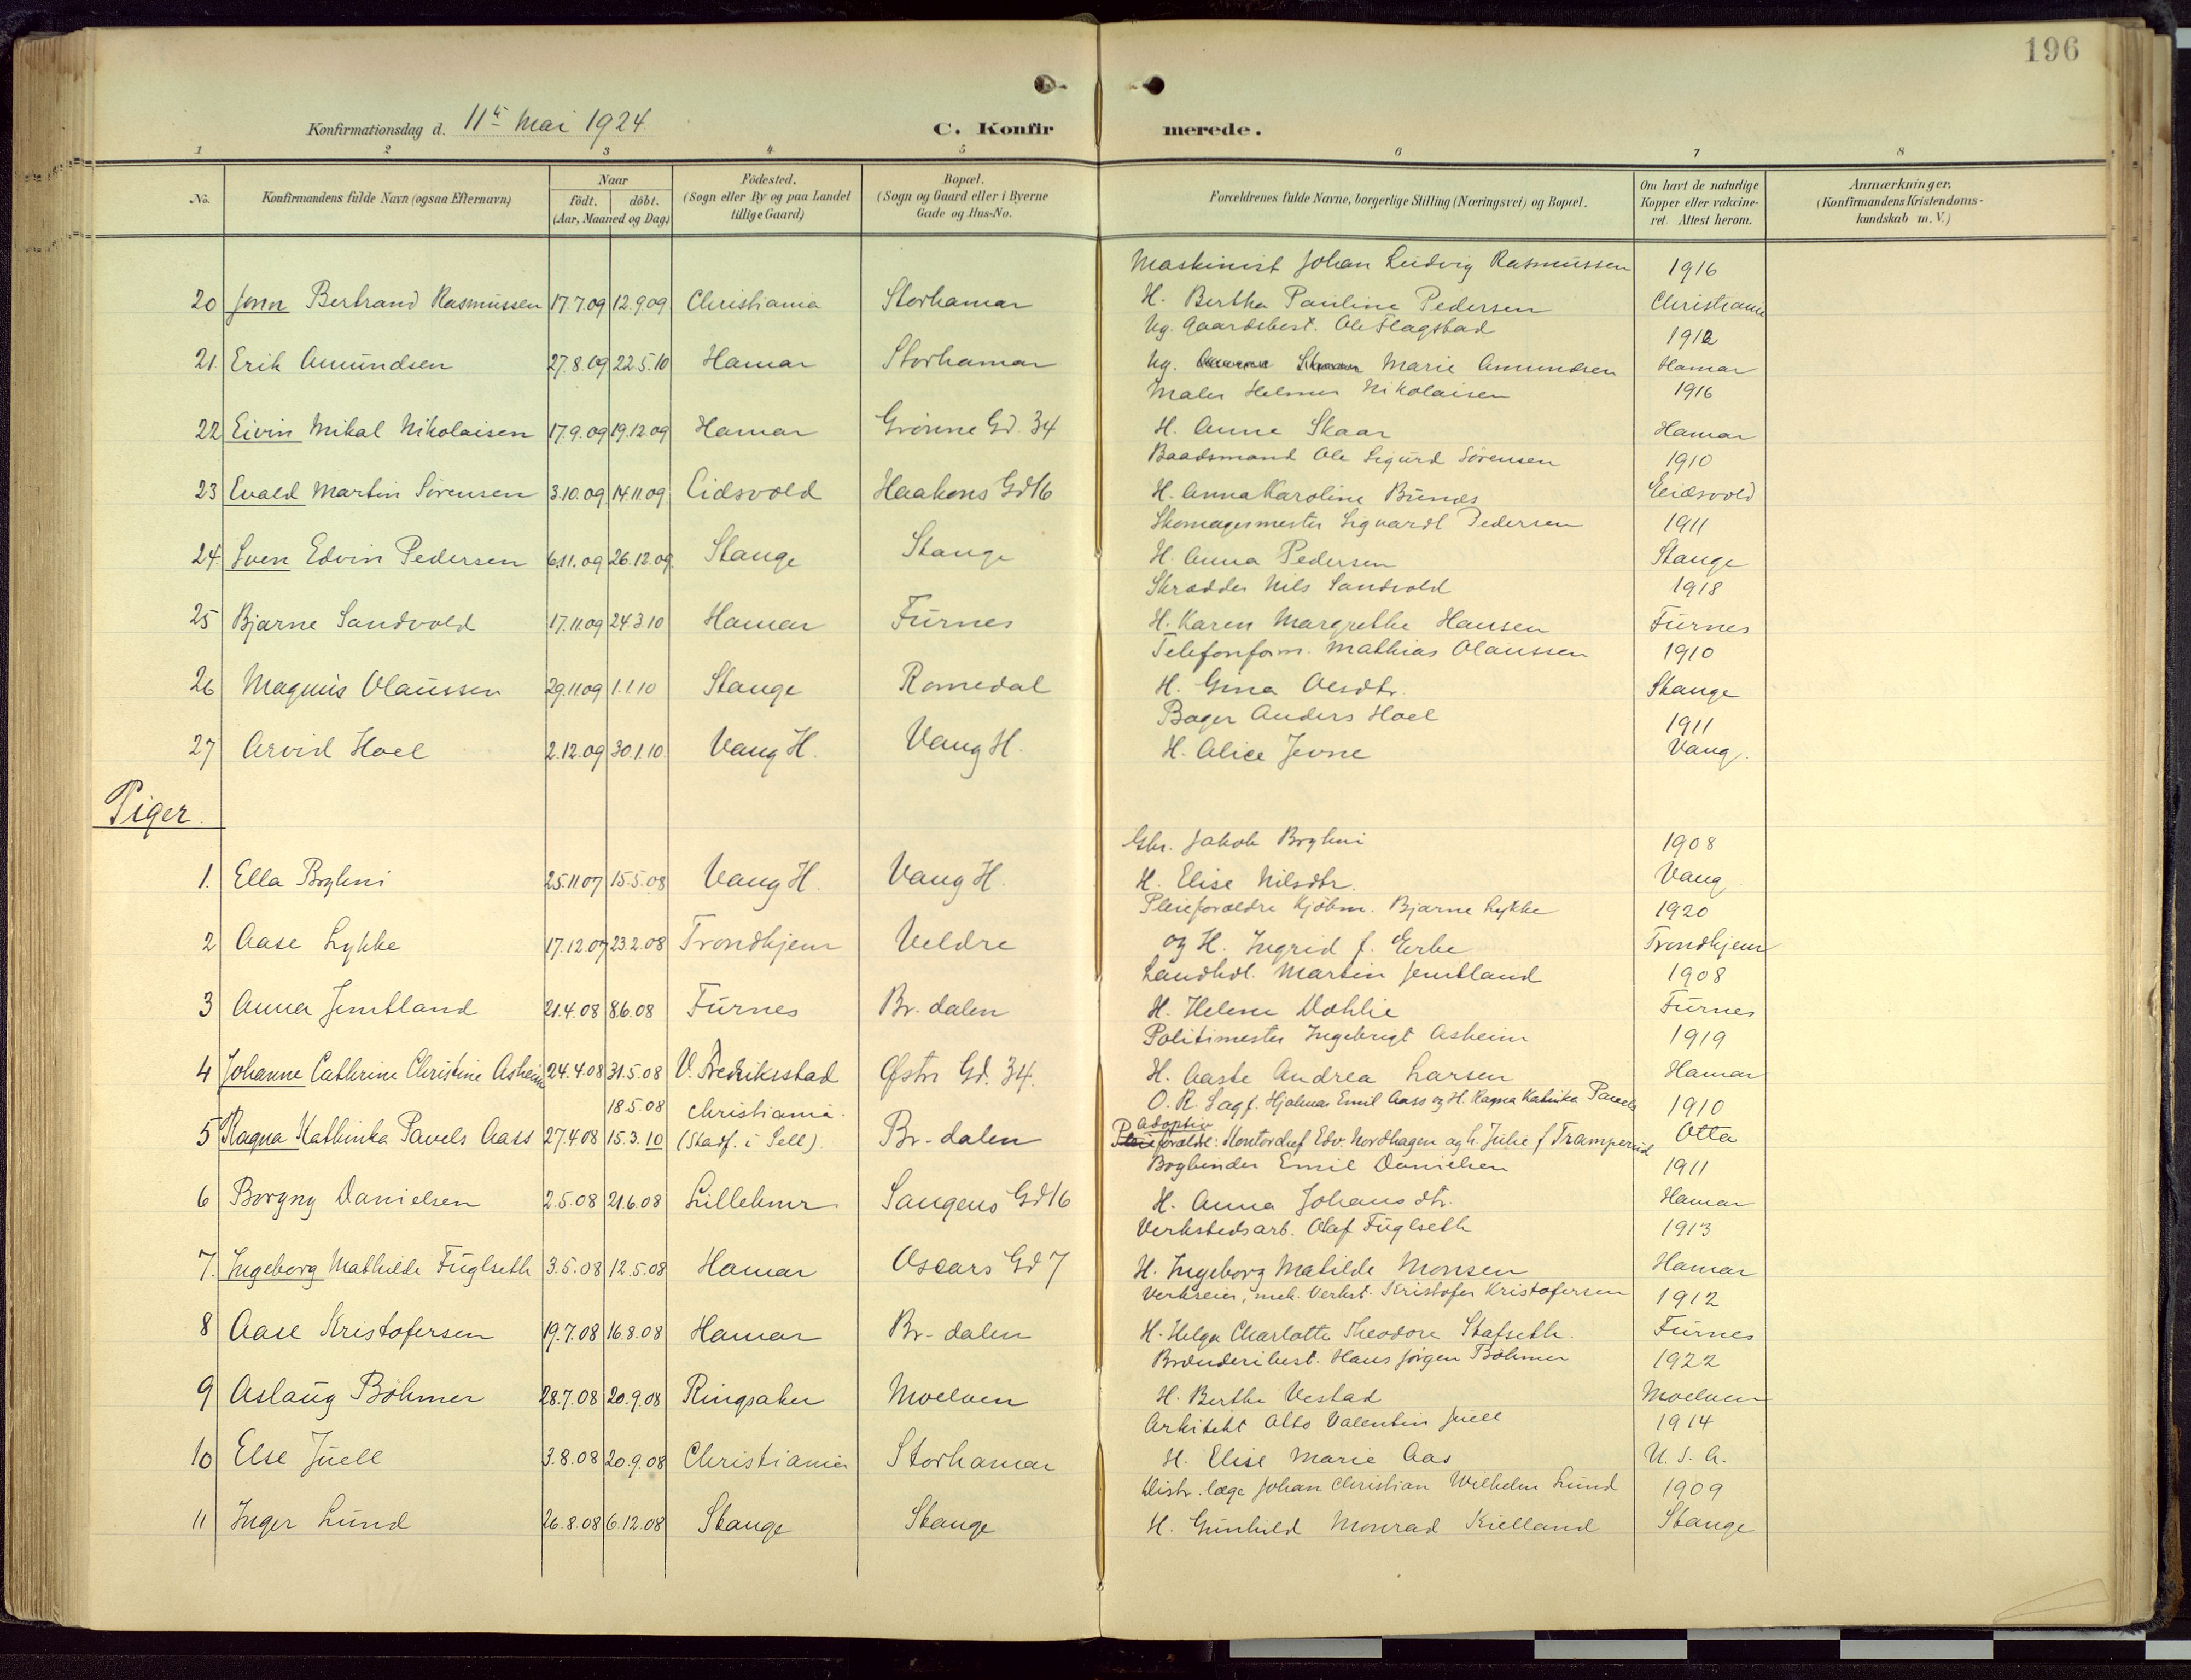 196
Konfirmationsdag d. 11te Mai 1924.
C. Konfirmerede.
1 2 3 4 5 6 7 8
No. Konfirmandens fulde Navn (ogsaa Efternavn) Naar født. døbt. (Aar, Maaned og Dag) Fødested. (Sogn eller By og paa Landet tillige Gaard) Bopæl. (Sogn og Gaard eller i Byerne Gade og Hus-No. Forældrenes fulde Navne, borgerlige Stilling (Næringsvei) og Bopæl. Om havt de naturlige Kopper eller vakcineret. Attest herom. Anmærkninger. (Konfirmandens Kristendomskundskab m. V.)
Maskinist Johan Ludvig Rasmussen 1916
20 John Bertrand Rasmussen 17.7.09 12.9.09 Christiania Storhamar H. Bertha Pauline Pedersen Christiania
Ug. Gaardsbest. Ole Flagstad 1912
21. Erik Amundsen 27.8.09 22.5.10 Hamar Storhamar Ug. Marie Amundsen Hamar
Maler Helmer Nikolaisen 1916
22 Eivin Mikal Nikolaisen 17.9.09 19.12.09 Hamar Grønne Gd. 34 H. Anne Skaar Hamar
Baadsmand Ole Sigurd Sørensen 1910
23 Evald Martin Sørensen 3.10.09 14.11.09 Eidsvold Haakons Gd 16 H. Anna Karoline Bundes Eidsvold
Skomagermester Sigvardt Pedersen 1911
24. Sven Edvin Pedersen 6.11.09 26.12.09. Stange Stange H. Anna Pedersen Stange
Skrædder Nils Sandvold 1918
25 Bjarne Sandvold 17.11.09 24.3.10 Hamar Furnes H. Karen Margrethe Hansen Furnes
Telefonform. Mathias Olaussen 1910
26 Magnus Olaussen 29.11.09 1.1.10 Stange Romedal H. Gina Olsdtr. Stange
Bager Anders Hoel 1911
27 Arvid Hoel 2.12.09 30.1.10. Vang H. Vang H. H. Alice Jevne Vang.
Piger.
Gbr. Jakob Bryhni 1908
1. Ella Bryhni 25.11.07 15.5.08 Vang H. Vang H. H. Elise Nilsdtr. Vang
Pleieforældre Kjøbm. Bjarne Lykke 1920
2 Aase Lykke 17.12.07 23.2.08 Trondhjem Veldre og H. Ingrid f. Erbe Trondhjem
Landhdl. Martin Jemtland 1908
3 Anna Jemtland 21.4.08 8.6.08 Furnes Br. dalen H. Helene Dæhlie Furnes
Politimester Ingebrigt Asheim 1919
4 Johanne Cathrine Christine Asheim 24.4.08 31.5.08 V. Fredriksstad Østre Gd. 34. H. Aaste Andrea Larsen Hamar
18.5.08 Christiania. O. R. Sagf. Hjalmar Emil Aass og H. Ragna Katinka Pavels 1910
Adoptiv
5 Ragna Kathinka Pavels Aass 27.4.08 15.3.10 (Stadf. i Sell). Br-dalen Pleieforældre: Kontorchef Edv. Nordhagen og h. Julie f Tramperud Otta
Bogbinder Emil Danielsen 1911
6 Borgny Danielsen 2.5.08 21.6.08 Lillehmr. Vangens Gd 16 H. Anna Johansdtr. Hamar
Verkstedsarb. Olaf Fuglseth 1913
7. Ingeborg Mathilde Fuglseth 3.5.08 12.5.08 Hamar Oscars Gd 7 H. Ingeborg Matilde Monsen Hamar
Verkseier, mek. Verkst. Kristofer Kristofersen 1912
8 Aase Kristofersen 19.7.08 16.8.08 Hamar Br-dalen H. Helga Charlotte Theodore Stafseth. Furnes
Brænderibest. Hans Jørgen Bøhmer 1922
9 Aslaug Bøhmer 28.7.08 20.9.08 Ringsaker Moelven H. Berthe Vestad Moelven
Arkitekt Otto Valentin Juell 1914
10 Else Juell 3.8.08 20.9.08 Christiania Storhamar H. Elise Marie Aas U. S. A.
Distr. læge Johan Christian Wilhelm Lund 1909
11 Inger Lund 26.8.08 6.12.08 Stange Stange H. Gunhild Monrad Kielland Stange